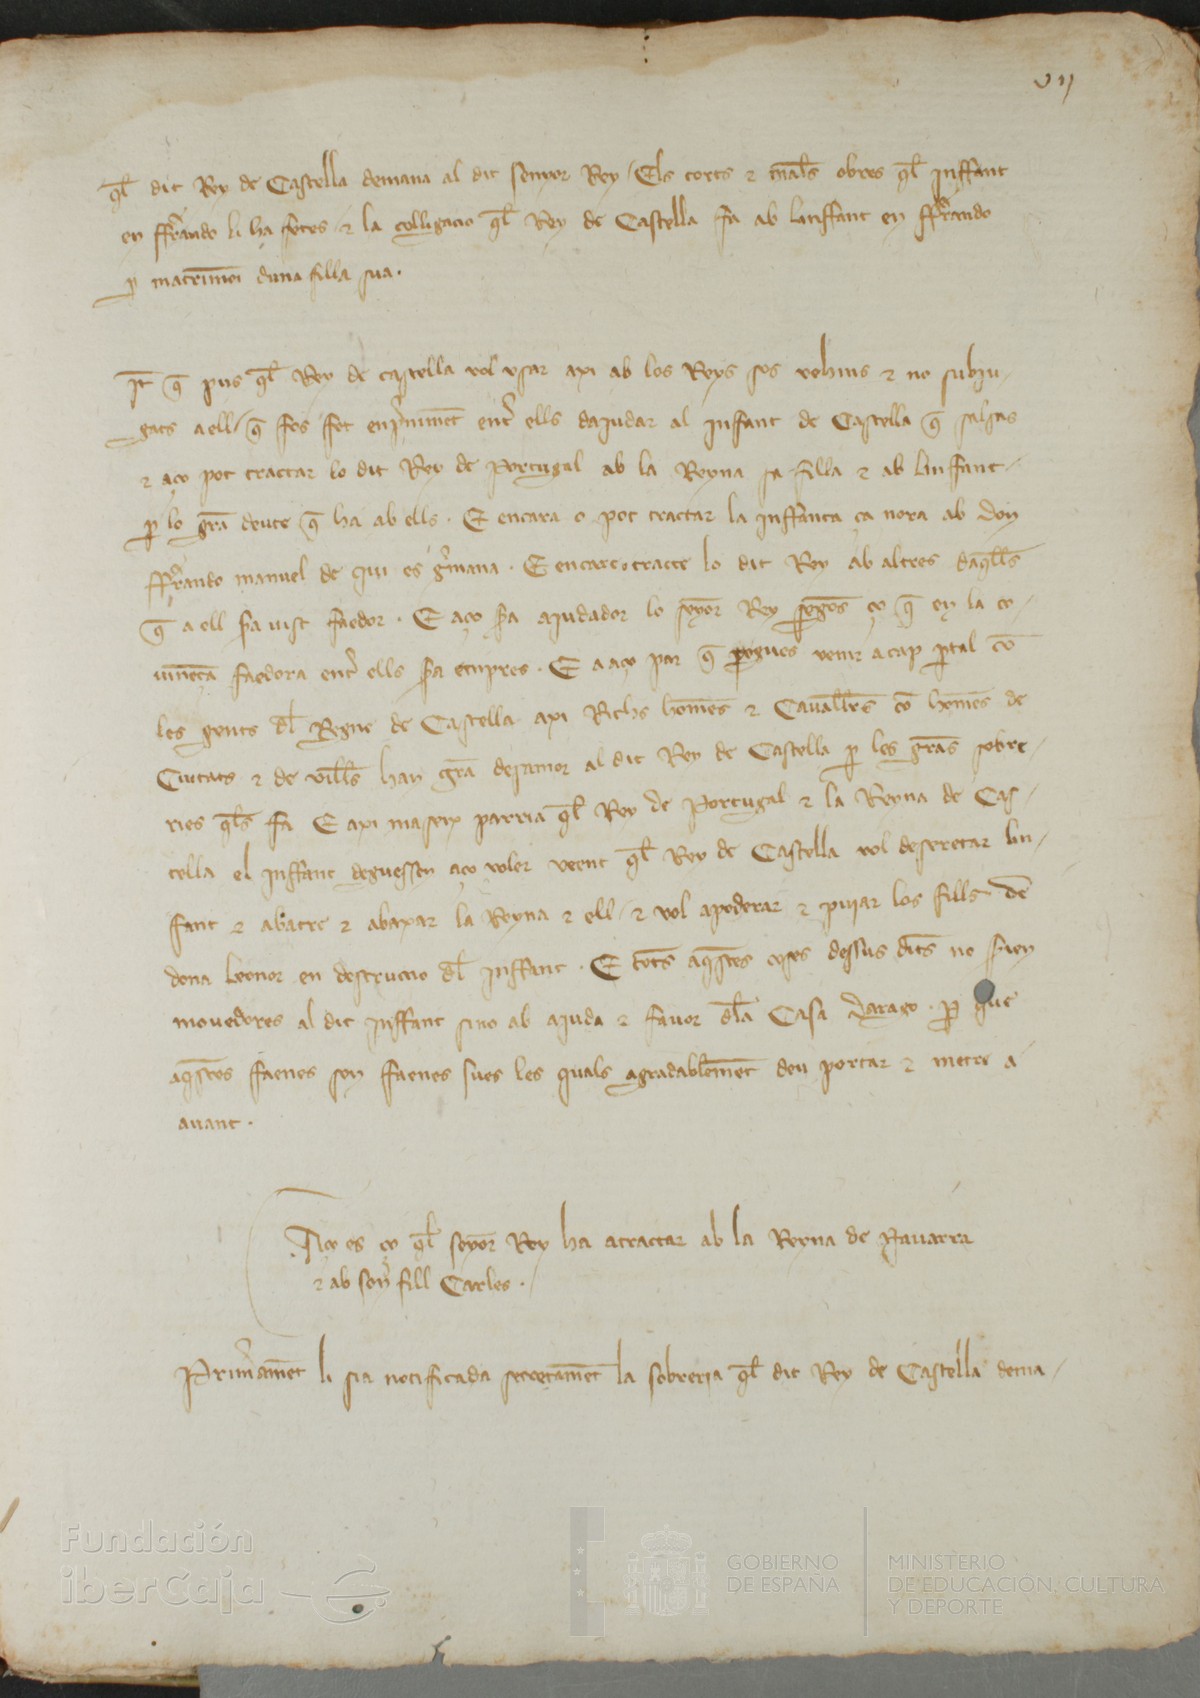 vij
q̅l dit Rey de Castella demana al dit senyor Rey / Els torts ⁊ mals obres q̅l Inffant
en fferrando li ha fetes ⁊ la colligacio q̅l Rey de Castella fa ab linffant en fferrando
p matrimoi duna filla sua .
It̅ q̅ pus q̅l Rey de Castella vol vsar axi ab los Reys sos vehins ⁊ no subiu-
gats a ell / q̅ fos fet entre ells dajudar al Infant de Castella q̅
⁊ aço pot tractar lo dit Rey de Portugal ab la Reyna sa filla ⁊ ab linffant
p lo gra̅ deute q̅ ha ab ells . E encara o pot tractar la inffanta ça nora ab don
fferrando manuel de qui es g̓mana . E encar o tracte lo dit Rey ab altres daq̅lls
q̅ a ell sia vist faedor . E aço sia ajudador lo seyor Rey segons ço q̅ en la co-
uinença faedora ent̓ ells sia empres . E a aço par q̅ pogues venir a cap p tal co̅
les gents dl Regne de Castella axi Richs homes ⁊ Cauallers co̅ homes de
Ciutats ⁊ de viles han gra̅ desamor al dit Rey de Castella p les gra̅s sobre-
ries q̅ls fa E axi mateix parria q̅l Rey de Portugal ⁊ la Reyna de Cas-
tella el Inffant deguessen aço voler veent q̅l Rey de Castella vol deseretar lin-
fant ⁊ abatre ⁊ abaxar la Reyna ⁊ ell / ⁊ vol apoderar ⁊ pujar los fills de
dona leonor en destruccio dl Inffant . E totes aq̅stes coses dessus dites no sien
mouedores al dit Inffant sino ab ajuda ⁊ fauor dla Casa Darago . p que
aq̅stes faenes son faenes sues les quals agradablement deu portar ⁊ metre a
auant .
Aço es ço q̅l seyor Rey ha a tractar ab la Reyna de Nauarra
⁊ ab son fill Carles .
Primerament li sia notificada secretament la sobreria q̅l dit Rey de Castella dema-
Fundación
iberCaja
GOBIERNO
DE ESPAÑA
MINISTERIO
DE EDUCACIÓN, CULTURA
Y DEPORTE